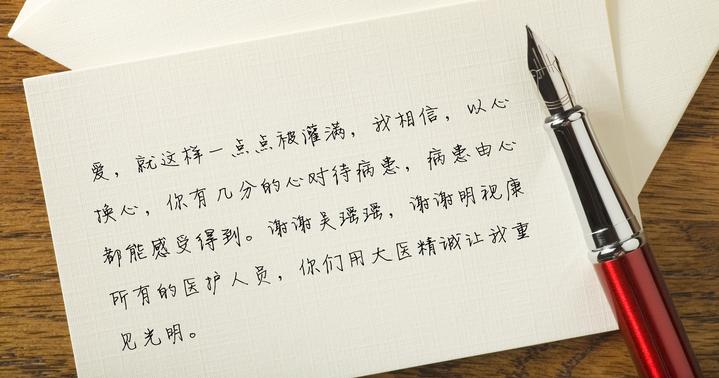 爱，就这样一点点被灌满，我相信，以心
换心，你有几分的心对待病患，病患由心
都能感受得到。谢谢吴瑶瑶，谢谢明视康
所有的医护人员，你们用大医精诚让我重
见光明。